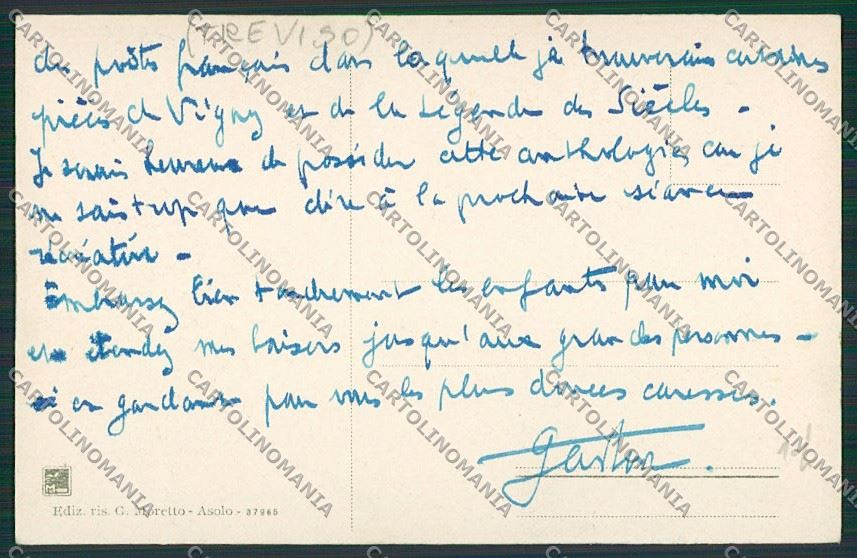 (TREVISO)
de poètes français dans laquelle je trouverais certaines
pièces de Vigny et de la Légende des Siècles -
Je serais heureux de posséder cette anthologie, car je
ne sais trop que dire à la prochaine séance
récréative -
Embrassez bien tendrement les enfants pour moi
et étendez mes baisers jusqu'aux grandes personnes -
en gardant pour vous les plus douces caresses.
Gaston.
Ediz. ris. G. Moretto - Asolo - 37965
CARTOLINOMANIA